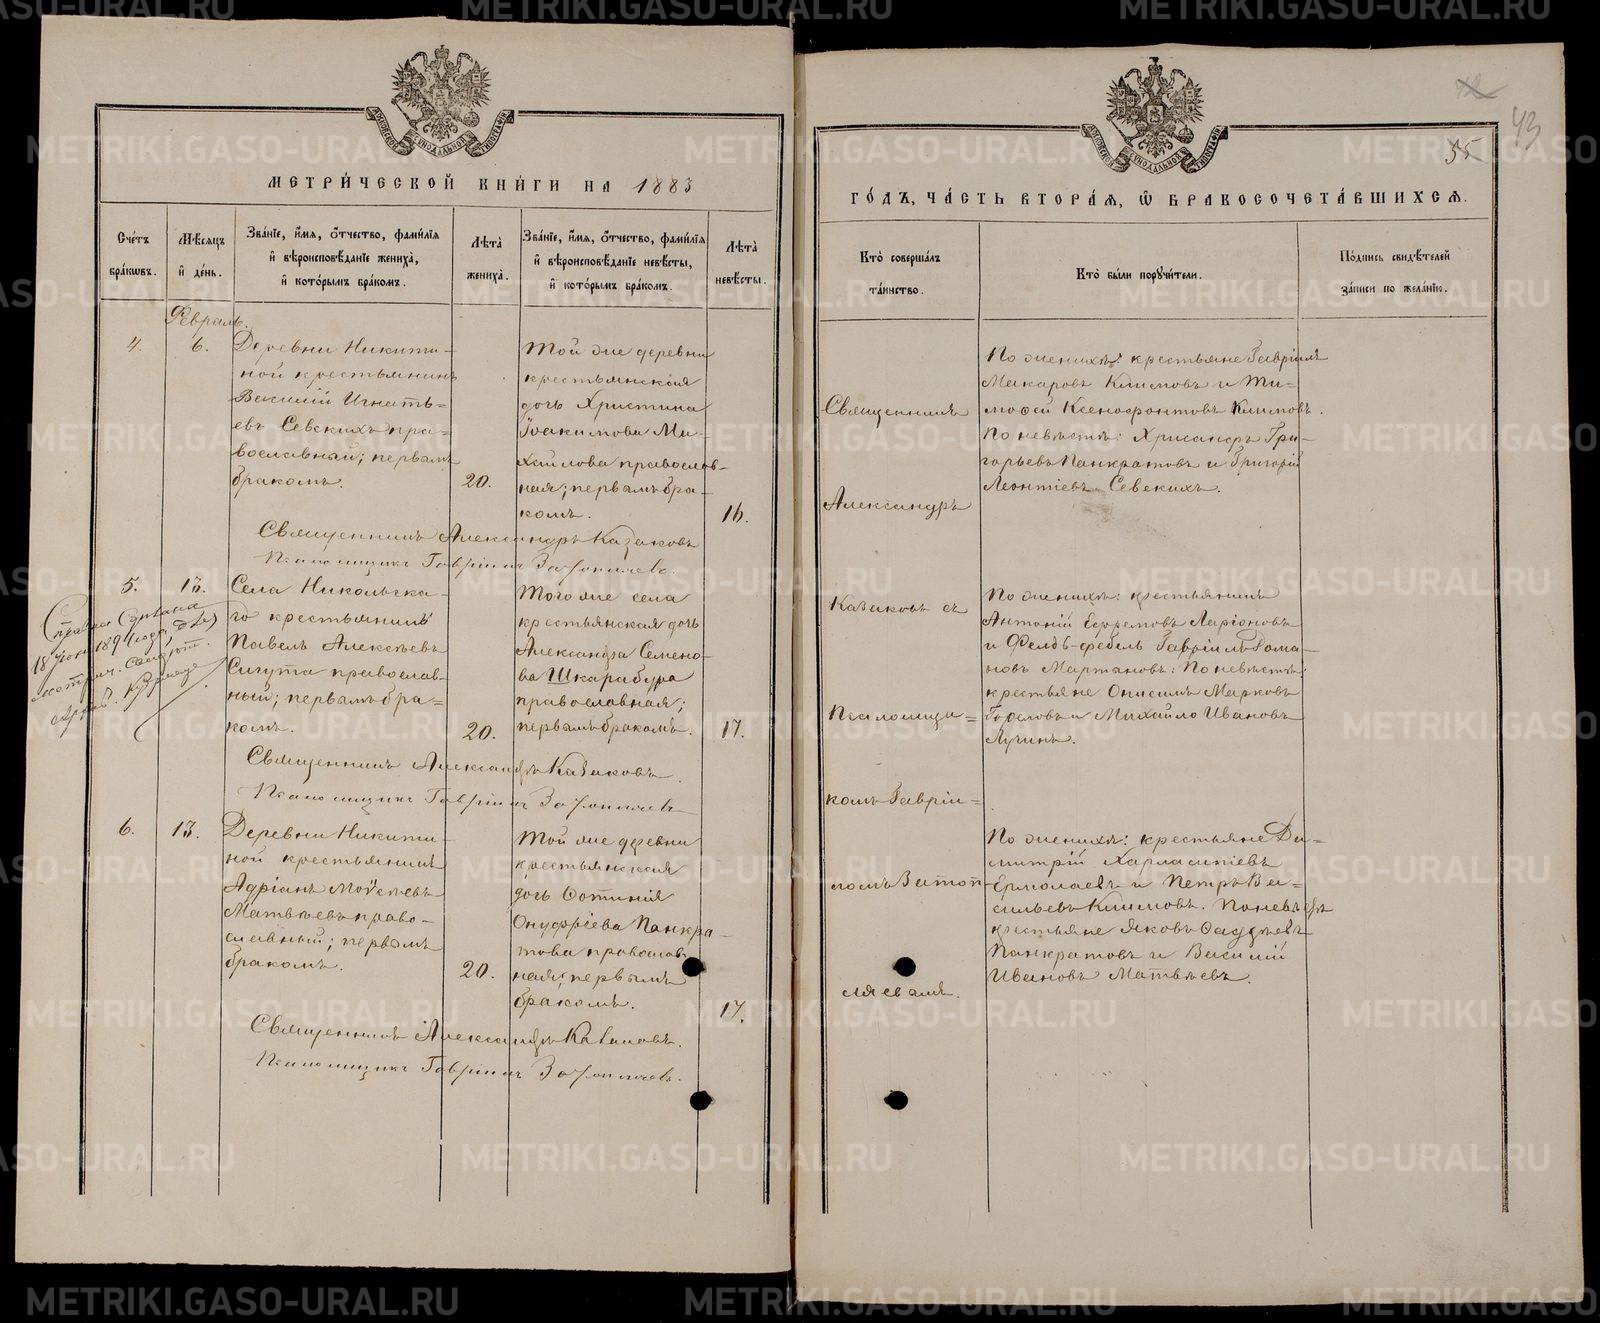 МОСКОВСКОЙ СѴНОДАЛЬНОЙ ТИПОГРАФІИ
МЕТРИ́ЧЕСКОЙ КНИ́ГИ НА 1883
Сче́тъ бра́ковъ.
Мѣ́сяцъ и҆ де́нь.
Зва́нїе, и҆́мя, ѻ҆́тчество, фами́лїя и҆ вѣроисповѣ́данїе жениха̀, и҆ кото́рымъ бра́комъ.
Лѣ́та жениха̀.
Зва́нїе, и҆́мя, ѻ҆́тчество, фами́лїя и҆ вѣроисповѣ́данїе невѣ́сты, и҆ кото́рымъ бра́комъ.
Лѣ́та невѣ́сты.
Февраль.
4.
6.
Деревни Никити-
ной крестьянинъ
Василій Игнать-
евъ Севскихъ пра-
вославный; первымъ
бракомъ.
20.
Той же деревни
крестьянская
дочь Христина
Іоакимова Ми-
хайлова православ-
ная; первымъ бра-
комъ.
16.
Священникъ Александръ Казаковъ
Псаломщикъ Гавріилъ
5.
13.
Села Никольска-
го крестьянинъ
Павелъ Алексѣевъ
Сигута православ-
ный; первымъ бра-
комъ.
20.
Того же села
крестьянская дочь
Александра Семено-
ва Шкарабура
православная;
первымъ бракомъ.
17.
Священникъ Александръ Казаковъ.
Псаломщикъ Гавріилъ
6.
13.
Деревни Никити-
ной крестьянинъ
Адріанъ Моѵсеевъ
Матвѣевъ право-
славный; первымъ
бракомъ.
20.
Той же деревни
крестьянская
дочь Фотинія
Онуфріева Панкра-
това православ-
ная; первымъ
бракомъ.
17.
Священникъ Александръ Казаковъ.
Псаломщикъ Гавріилъ
43
35
ГО́ДЪ, ЧА́СТЬ ВТОРА́Я, Ѽ БРАКОСОЧЕТА́ВШИХСЯ.
Кто̀ соверша́лъ та́инство.
Кто̀ бы́ли поручи́тели.
По́дпись свидѣ́телей за́писи по жела́нїю.
Священникъ
Александръ
Казаковъ съ
Псаломщи=
комъ Гавріи=
ломъ
По женихѣ: крестьяне Гавріилъ
Макаровъ Климовъ и Ти-
моѳей Ксенофонтовъ Климовъ.
По невѣстѣ: Хрисанфъ Гри-
горьевъ Панкратовъ и Григорій
Леонтіевъ Севскихъ.
По женихѣ: крестьянинъ
Антоній Ефремовъ Ларіоновъ
и Фельдъ-фебель Гавріилъ Рома-
новъ Мартановъ: По невѣстѣ:
крестьяне Онисимъ Марковъ
Гореловъ и Михайло Ивановъ
Лучинъ.
По женихѣ: крестьяне Ди-
митрій Харлампіевъ
Ермолаевъ и Петръ Ва-
сильевъ Климовъ. По невѣстѣ
крестьяне Яковъ Фаддѣевъ
Панкратовъ и Василій
Ивановъ Матвѣевъ.
METRIKI.GASO-URAL.RU